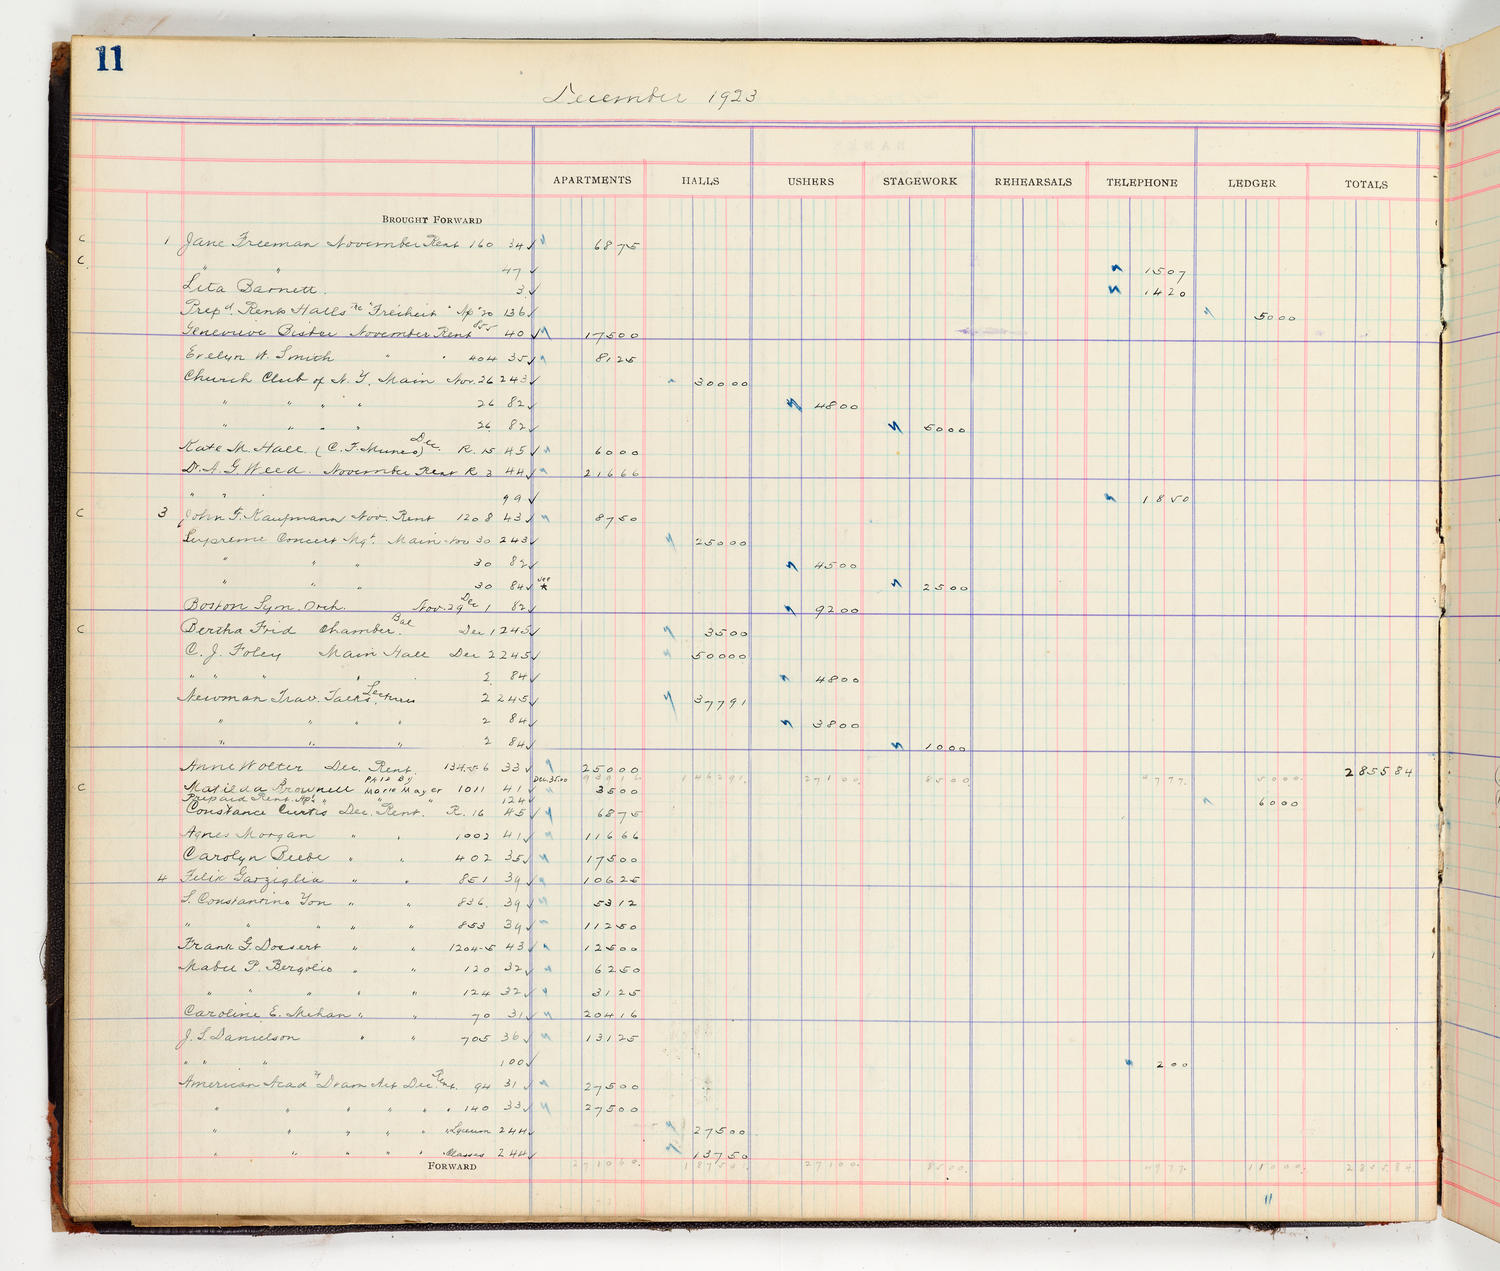 11
December 1923
APARTMENTS HALLS USHERS STAGEWORK REHEARSALS TELEPHONE LEDGER TOTALS
BROUGHT FORWARD
C 1 Jane Freeman November Rent 160 34 ✓ 6875
C. " " 47 ✓ 1507
Lita Barnett. 3 ✓ 1420
Prepd. Rents Halls "Freiheit" Ap 20 136 ✓ 5000
Genevieve Bisbee November Rent 855 40 ✓ 17500
Evelyn W. Smith " " 404 35 ✓ 8125
Church Club of N.Y. Main Nov. 26 243 ✓ 30000
" " " " 26 82 ✓ 4800
" " " " 26 82 ✓ 5000
Kate M. Hall. (C. F. Munro) Dec. R. 15 45 ✓ 6000
Dr. A. G. Weed. November Rent R 3 44 ✓ 21666
" " 99 ✓ 1850
C 3 John F. Kaufmann Nov. Rent 1208 43 ✓ 8750
Supreme Concert Mgt. Main Nov 30 243 ✓ 25000
" " " 30 82 ✓ 4500
" " 30 84 ✓ 2500
Boston Sym. Orch. Nov. 29 Dec 1 82 ✓ 9200
C Bertha Frid Chamber. Bal Dec 1 245 ✓ 3500
C. J. Foley Main Hall Dec 2 245 ✓ 50000
" " " " 2 84 ✓ 4800
Newman Trav. Talks Lectures 2 245 ✓ 37791
" " " " 2 84 ✓ 3800
" " " 2 84 ✓ 1000
Anne Wolter Dec. Rent. 134-5-6 33 ✓ 25000 285584
C Matilda Brownell Paid By Marie Mayer 1011 41 ✓ 3500
Prepaid Rent. Apts " " " 124 6000
Constance Curtis Dec. Rent. R. 16 45 ✓ 6875
Agnes Morgan " " 1002 41 ✓ 11666
Carolyn Beebe " " 402 35 ✓ 17500
4 Felix Garziglia " " 851 39 ✓ 10625
S. Constantino Yon " " 836. 39 ✓ 5312
" " " " " 853 39 ✓ 11250
Frank G. Dossert " " 1204-5 43 ✓ 12500
Mabel P. Bergolio " " 120 32 ✓ 6250
" " " " " 124 32 ✓ 3125
Caroline E. Mehan " " 70 31 ✓ 20416
J. S. Danielson " " 705 36 ✓ 13125
" " " 100 ✓ 200
American Acad of Dram Art Dec Rent. 94 31 ✓ 27500
" " " " " " 140 33 ✓ 27500
" " " " " " Lyceum 244 ✓ 27500
" " " " " " Classes 244 ✓ 13750
FORWARD 27100. 8500. 11000. 285584
11